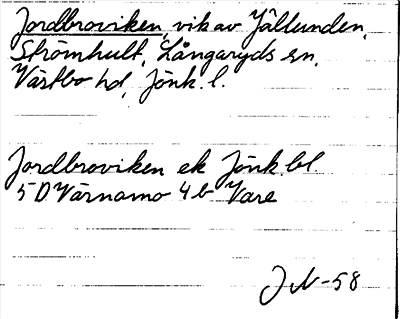 Jordbroviken, vik av Jällunden,
Strömhult, Långaryds sn,
Västbo hd, Jönk. l.
Jordbroviken ek Jönk. bl.
5 D Värnamo 4 b Vare
J N -58